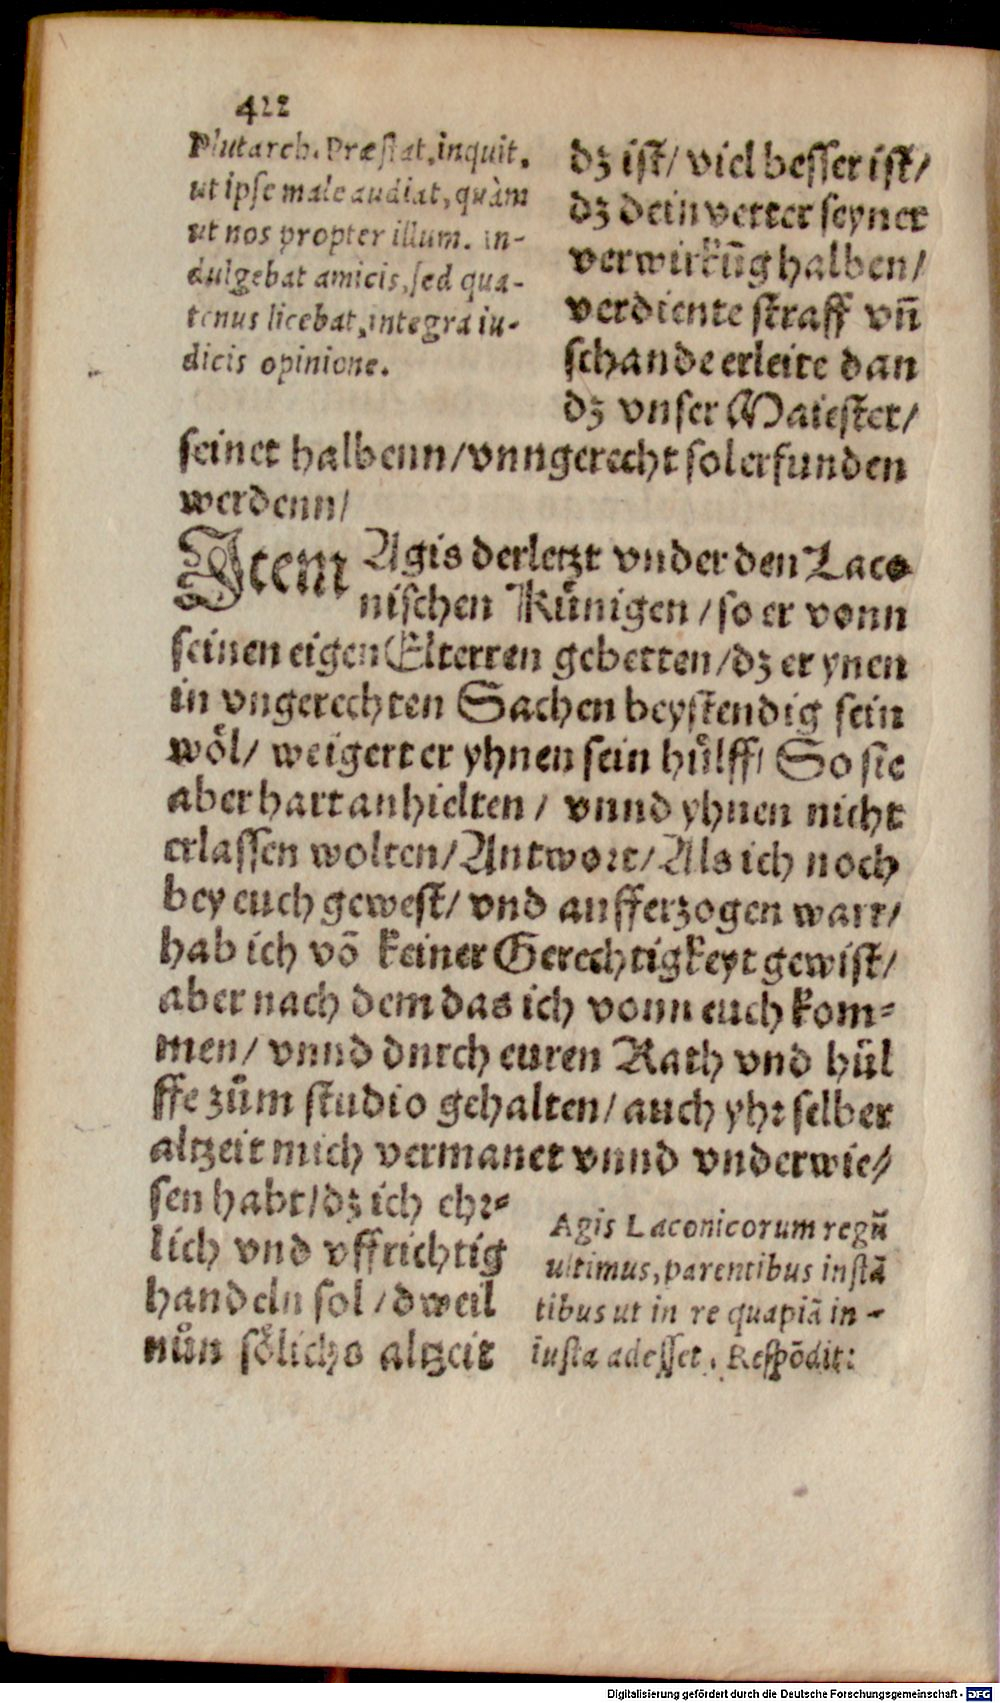 422
Plutarch. Præſtat, inquit,
ut ipſe male audiat, quàm
ut nos propter illum. in-
dulgebat amicis, ſed qua-
tenus licebat, integra iu-
dicis opinione.
dʒ iſt/ viel beſſer iſt/
dʒ dein vetter ſeyner
verwirkūg halben/
verdiente ſtraff vñ
ſchande erleite dan
dʒ vnſer Maieſtet/
ſeinet halbenn/vnngerecht ſol erfunden
werdenn/
Item Agis der letzt vnder den Laco
niſchen Kuͤnigen /ſo er vonn
ſeinen eigen Elterren gebetten/dʒ er ynen
in vngerechten Sachen beyſtendig ſein
woͤl/ weigert er yhnen ſein huͤlff/ So ſie
aber hart anhielten / vnnd yhnen nicht
erlaſſen wolten/Antwort/Als ich noch
bey euch geweſt/ vnd aufferzogen warr/
hab ich vō keiner Gerechtigkeyt gewiſt/
aber nach dem das ich vonn euch kom⸗
men/ vnnd dnrch euren Rath vnd huͤl
ffe zuͤm ſtudio gehalten/ auch yhr ſelber
altzeit mich vermanet vnnd vnderwie⸗
ſen habt/dʒ ich ehr⸗
lich vnd vffrichtig
handeln ſol /dweil
nuͤn ſoͤlichs altzeit
Agis Laconicorum regū
ultimus, parentibus inſtā
tibus ut in re quapiā in-
iuſta adeſſet, Reſpōdit:
Digitalisierung gefördert durch die Deutsche Forschungsgemeinschaft - DFG